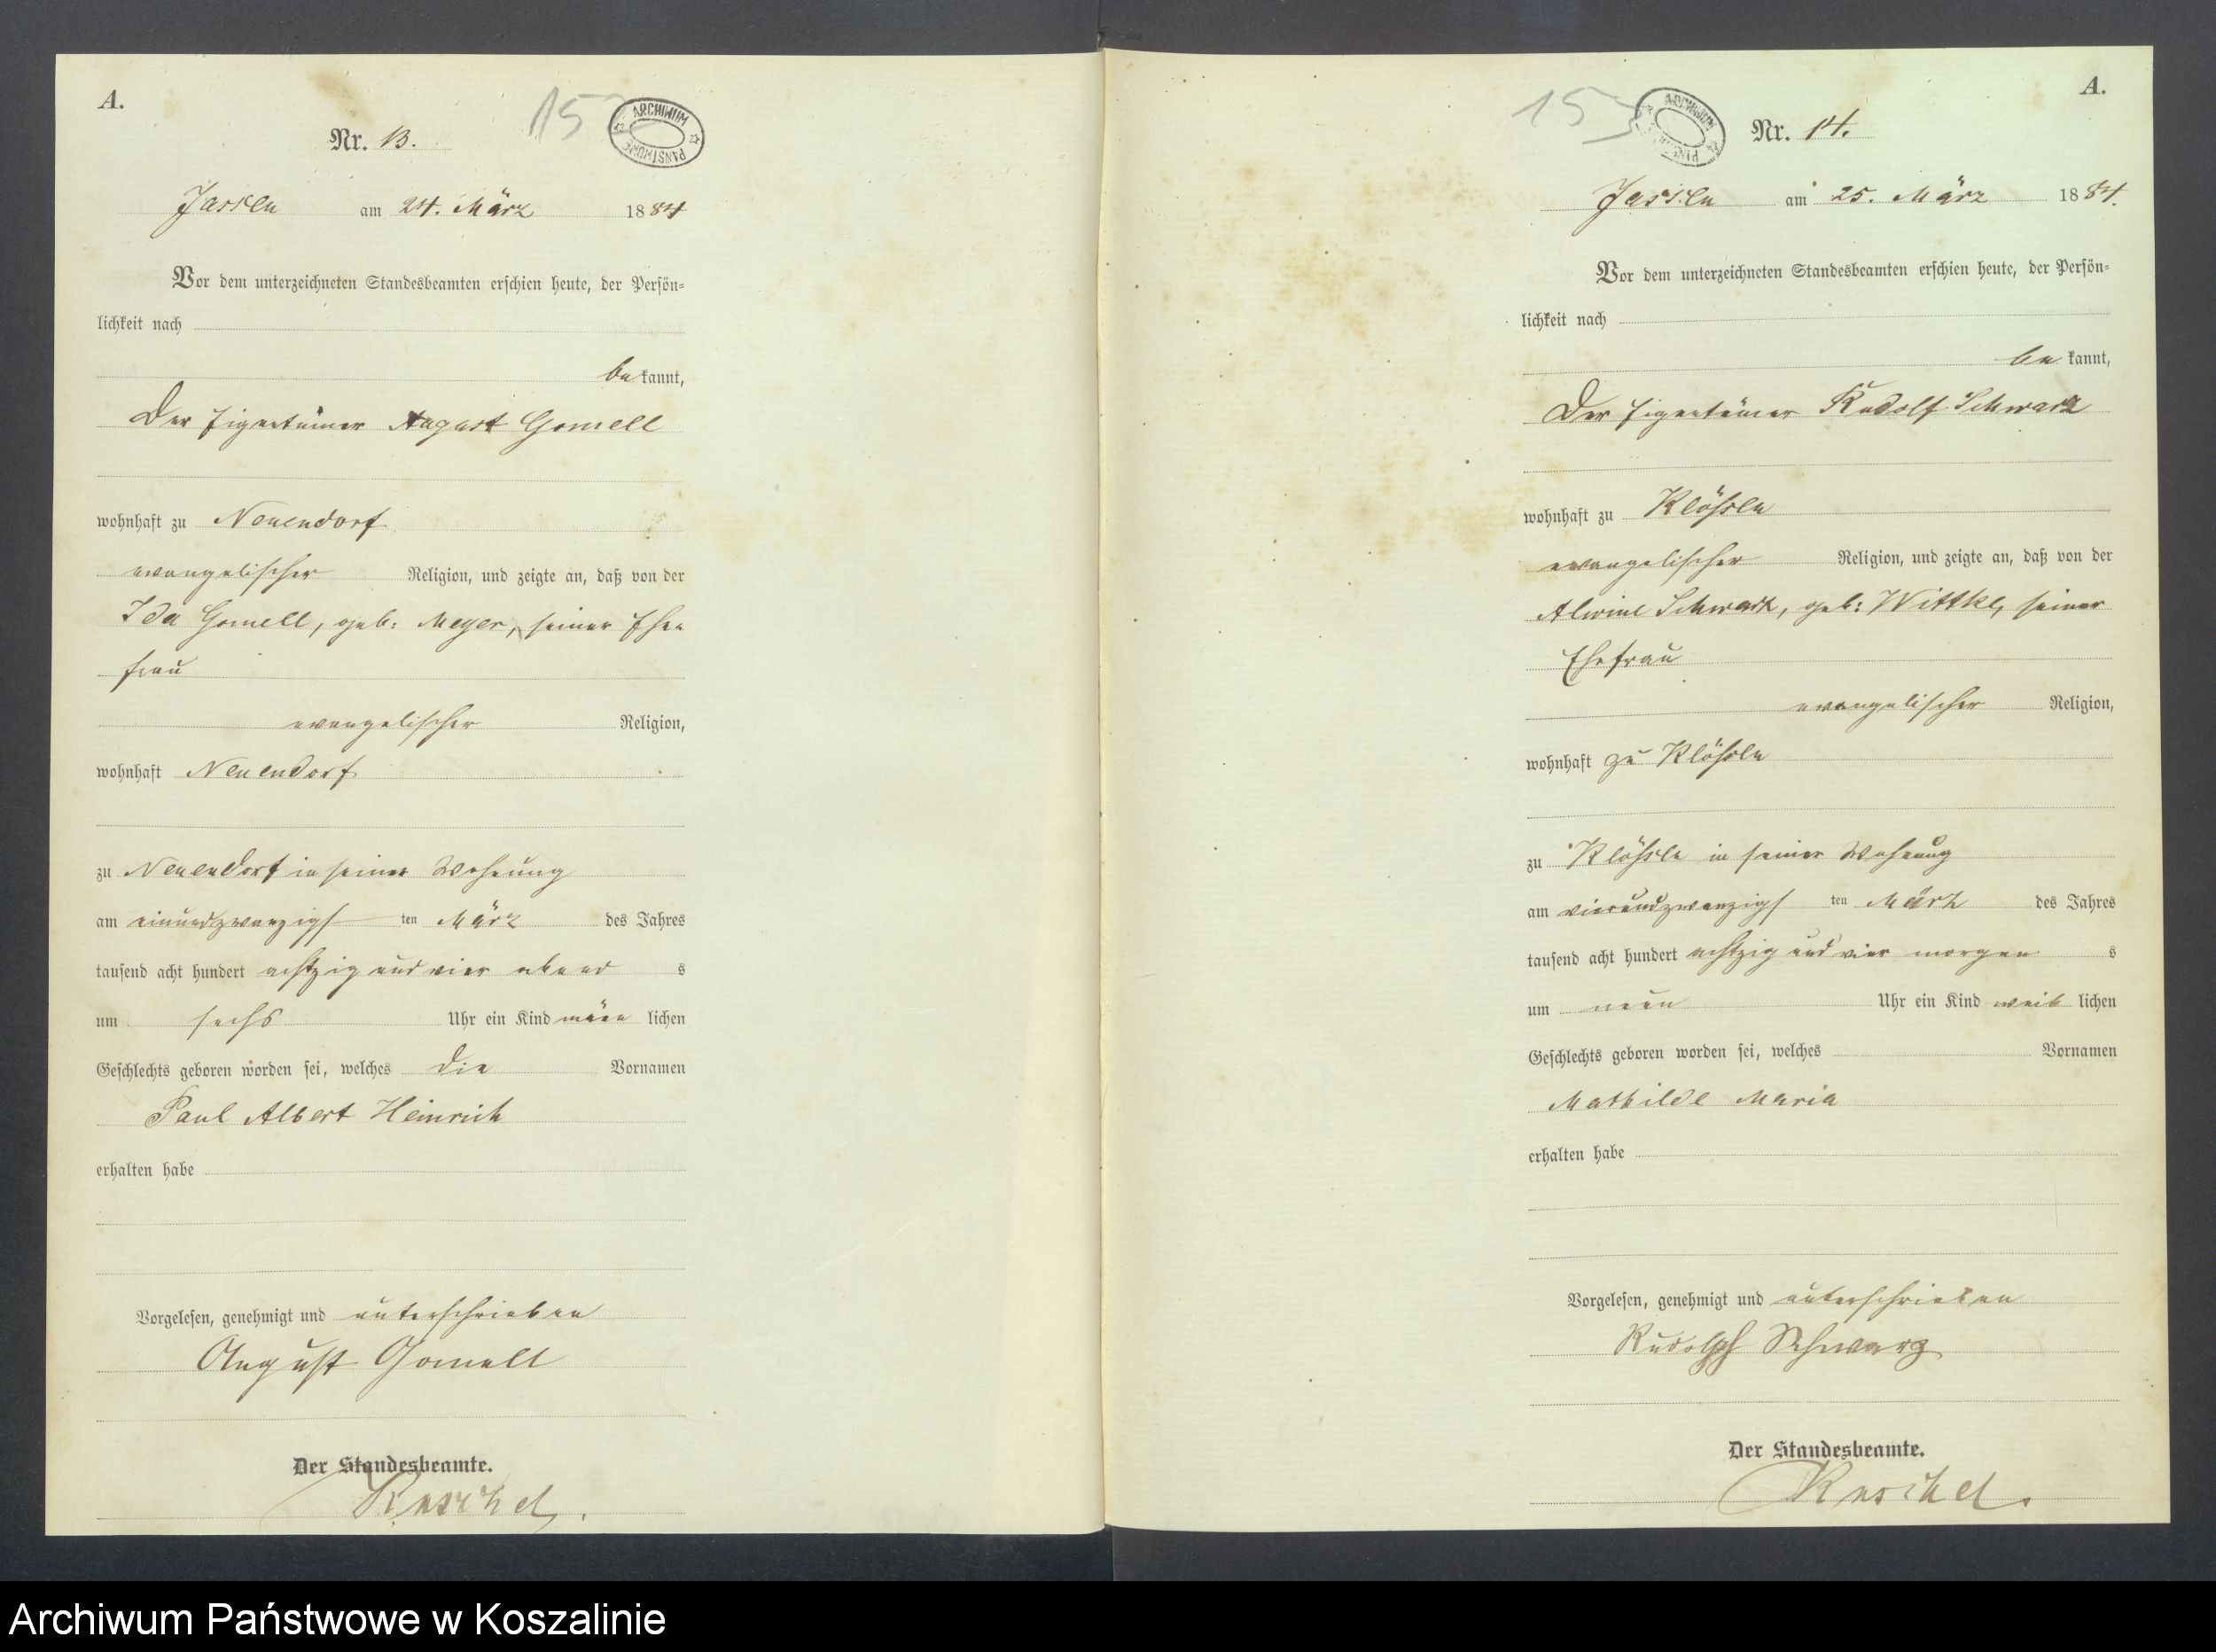 A.
152
ARCHIWUM PAŃSTWOWE
Nr. 13.
Jassen am 24. März 1884
Vor dem unterzeichneten Standesbeamten erschien heute, der Persön-
lichkeit nach
be kannt,
Der Eigentümer August Gomell
wohnhaft zu Neuendorf
evangelischer Religion, und zeigte an, daß von der
Ida Gomell, geb: Meyer, seiner Ehe-
frau
evangelischer Religion,
wohnhaft Neuendorf
zu Neuendorf in seiner Wohnung
am einundzwanzigs ten März des Jahres
tausend acht hundert achtzig und vier abend s
um sechs Uhr ein Kind männ lichen
Geschlechts geboren worden sei, welches die Vornamen
Paul Albert Heinrich
erhalten habe
Vorgelesen, genehmigt und unterschrieben
August Gomell
Der Standesbeamte.
A.
153
ARCHIWUM PAŃSTWOWE
Nr. 14.
Jassen am 25. März 1884.
Vor dem unterzeichneten Standesbeamten erschien heute, der Persön-
lichkeit nach
be kannt,
Der Eigentümer Rudolf Schwarz
wohnhaft zu Klössen
evangelischer Religion, und zeigte an, daß von der
Alwine Schwarz, geb: Wittke, seiner
Ehefrau
evangelischer Religion,
wohnhaft zu Klössen
zu Klössen in seiner Wohnung
am vierundzwanzigs ten März des Jahres
tausend acht hundert achtzig und vier morgen s
um neun Uhr ein Kind weib lichen
Geschlechts geboren worden sei, welches Vornamen
Mathilde Maria
erhalten habe
Vorgelesen, genehmigt und unterschrieben
Rudolph Schwarz
Der Standesbeamte.
Archiwum Państwowe w Koszalinie